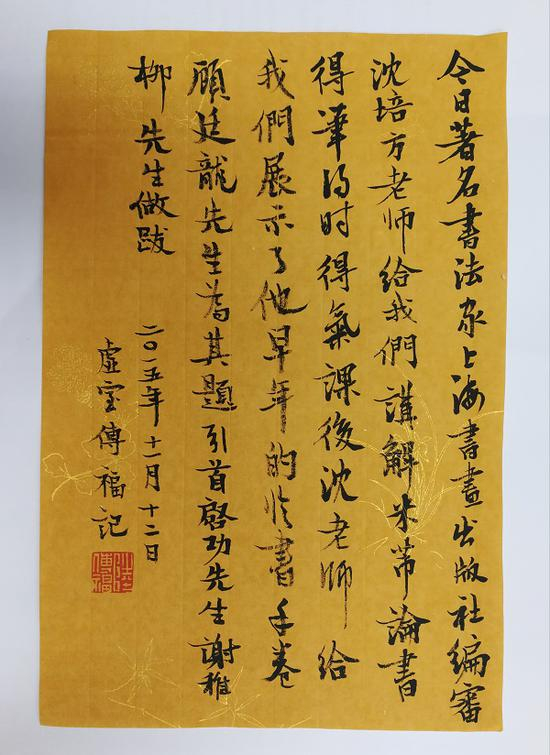 今日著名書法家上海書畫出版社编審
沈培方老师给我們講解米芾論書
得筆得时得氣課後沈老师给
我們展示了他早年的临書手卷
顧廷龍先生為其題引首啓功先生謝稚
柳先生做跋
二〇一五年十一月十二日
虛室傅福記